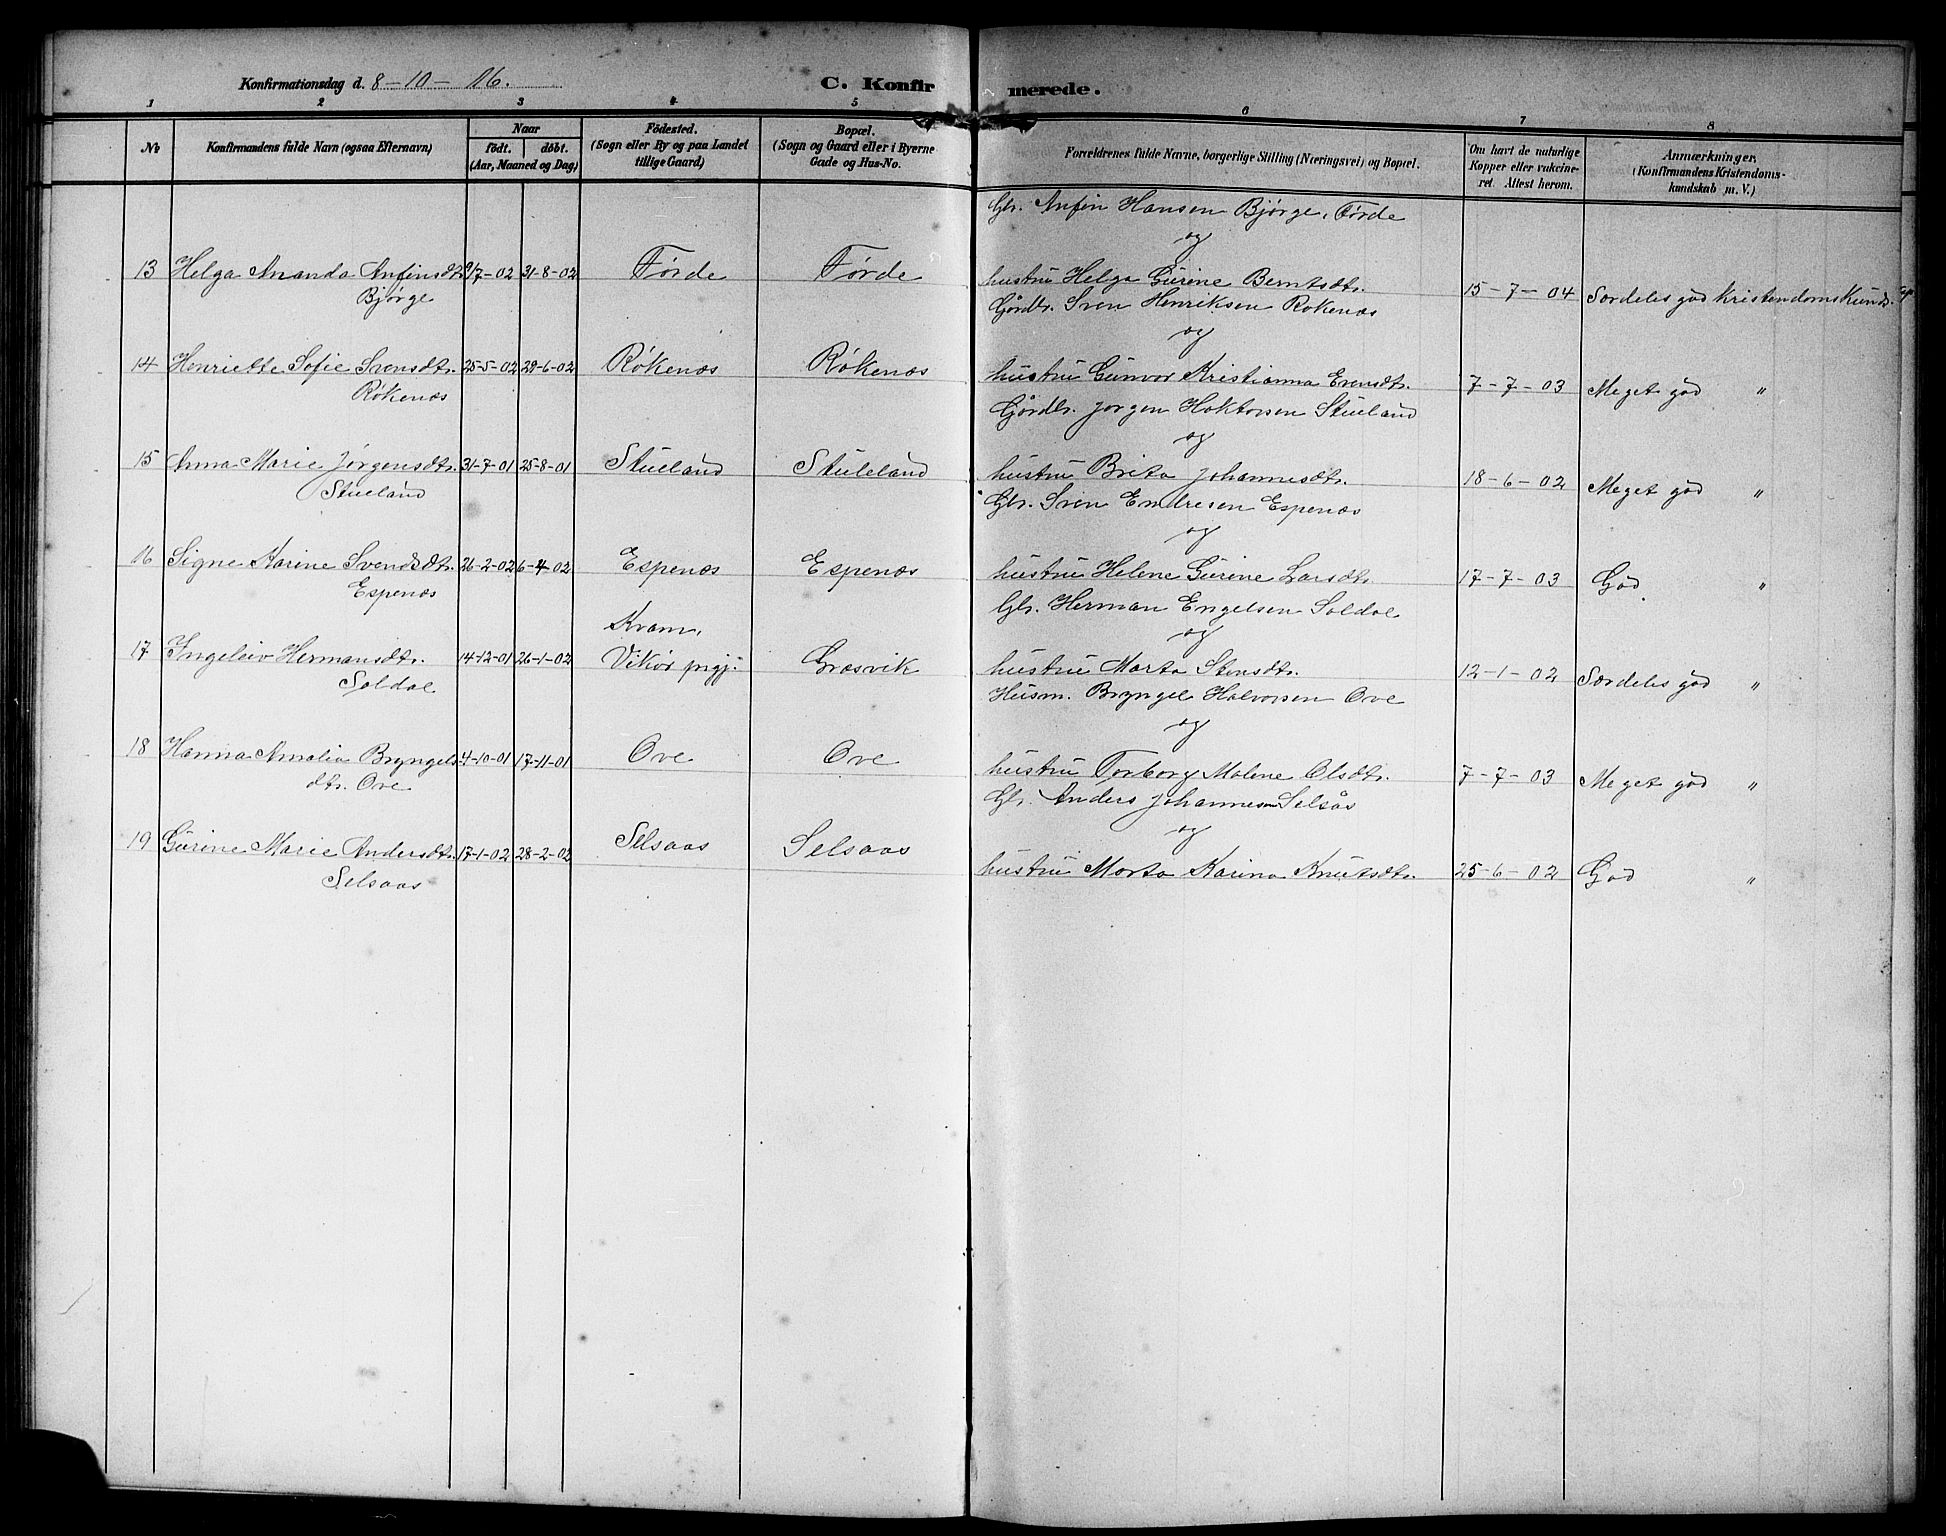 Konfirmationsdag d. 8-10-16.
C. Konfirmerede.
1 2 3 4 5 6 7 8
No
Konfirmandens fulde Navn (ogsaa Efternavn)
Naar
født. døbt.
(Aar, Maaned og Dag)
Fødested.
(Sogn eller By og paa Landet
tillige Gaard)
Bopæl.
(Sogn og Gaard eller i Byerne
Gade og Hus-No.
Forældrenes fulde Navne, borgerlige Stilling (Næringsvei) og Bopæl.
Om havt de naturlige
Kopper eller vakcine-
ret. Attest herom.
Anmærkninger,
(Konfirmandens Kristendoms-
kundskab m. V.)
Gbr. Anfin Hansen Bjørge, Førde
og
13 Helga Ananda Anfinsdtr. 7-02 31-8-02 Førde Førde hustru Helga Gurine Berntsdtr. 15-7-04 Særdeles god Kristendomskundsk.
Bjørge
Gårdbr. Sven Henriksen Røkenæs
og
14 Henriette Sofie Svensdtr. 25-5-02 29-6-02 Røkenæs Røkenæs hustru Gunvor Kristianna Evensdtr. 7-7-03 Meget god "
Røkenæs
Gårdbr. Jørgen Haktorsen Stueland
og
15 Anna Marie Jørgensdtr. 31-7-01 25-8-01 Stueland Stueland hustru Brita Johannesdtr. 18-6-02 Meget god "
Stueland
Gbr. Sven Endresen Espenæs
og
16 Signe Karine Svendsdtr. 26-2-02 6-4-02 Espenæs Espenæs hustru Helene Gurine Larsdtr. 17-7-03 God "
Espenæs
Gbr. Herman Engelsen Soldal
og
Kvam,
17 Ingeleiv Hermansdtr. 14-12-01 26-1-02 Vikør prgj. Græsvik hustru Marta Stensdtr. 12-1-02 Særdeles god "
Soldal
Husm. Bryngel Halvorsen Ove
og
18 Hanna Amalia Bryngels 4-10-01 17-11-01 Ove Ove hustru Torborg Malene Olsdtr. 7-7-03 Meget god "
dtr. Ove
Gbr. Anders Johannesen Selsås
og
19 Gurine Marie Andersdtr. 17-1-02 28-2-02 Selsaas Selsaas hustru Marta Karina Knutsdtr. 25-6-02 God "
Selsaas